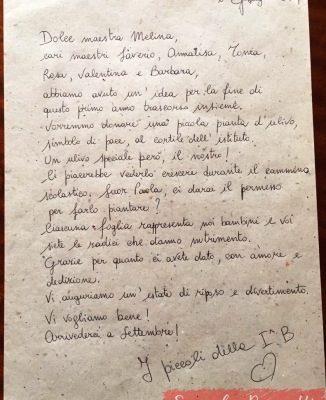 Dolce maestra Melina,
cari maestri Saverio, Annalisa,
Rosa, Valentina e Barbara,
abbiamo avuto un'idea per la fine di
questo primo anno trascorso insieme.
Vorremmo donare una picola pianta d'ulivo,
simbolo di pace, al cortile dell'istituto.
Un ulivo speciale però, il nostro!
Ci piacerebbe vederlo crescere durante il cammino
scolastico. Suor Paola, ci darai il permesso
per farlo piantare?
Ciascuna foglia rappresenta noi bambini e voi
siete le radici che danno nutrimento.
Grazie per quanto ci avete dato, con amore e
dedizione.
Vi auguriamo un'estate di riposo e divertimento.
Vi vogliamo bene!
Arrivederci a Settembre!
I piccoli della I^ B